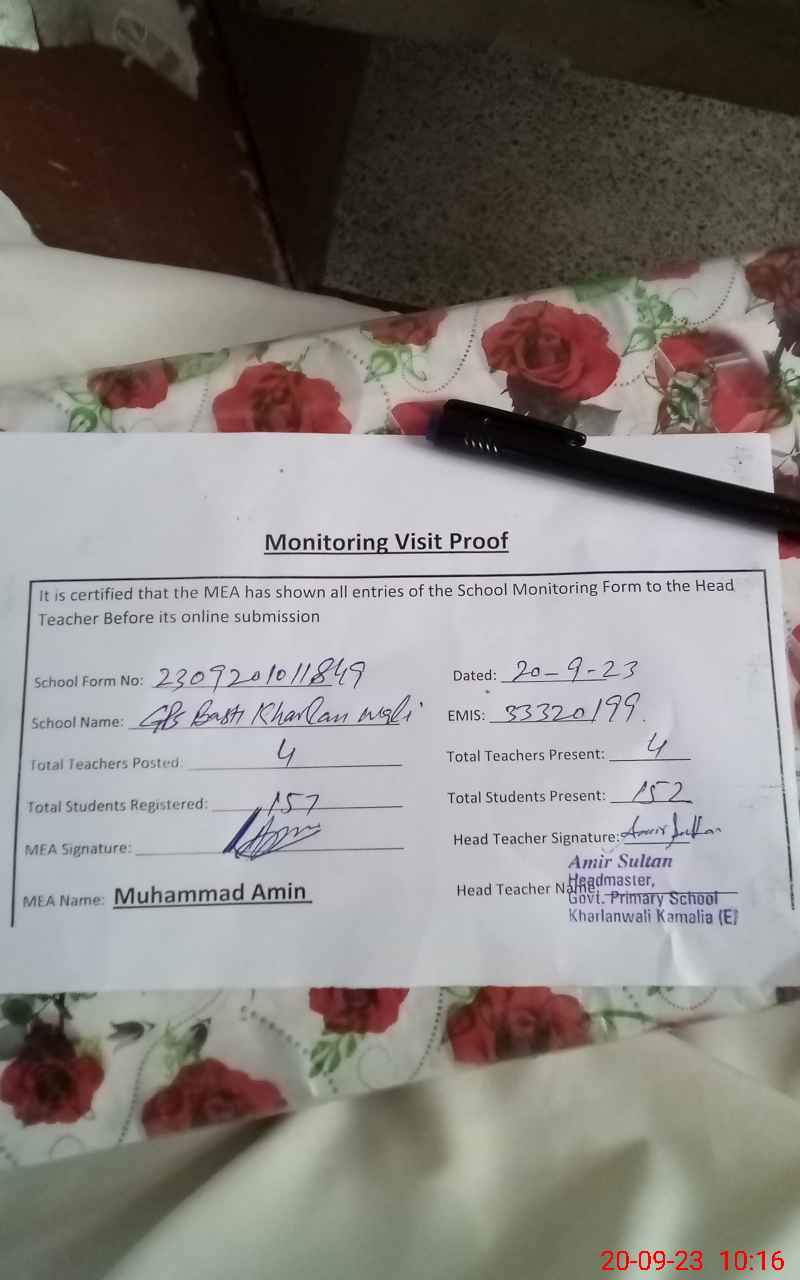 Monitoring Visit Proof
It is certified that the MEA has shown all entries of the School Monitoring Form to the Head
Teacher Before its online submission
School Form No: 230920101 1849 Dated: 20-9-23
School Name: GPS Basti Kharlan wali EMIS: 33320199
Total Teachers Posted: 4 Total Teachers Present: 4
Total Students Registered: 157 Total Students Present: 152
MEA Signature: Head Teacher Signature: Amir Sultan
MEA Name: Muhammad Amin Head Teacher Name:
Amir Sultan
Headmaster,
Govt. Primary School
Kharlanwali Kamalia (E)
20-09-23 10:16